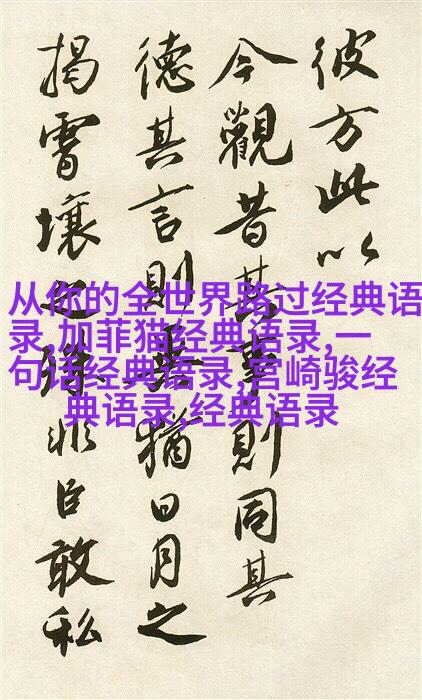 彼方此以
今觀昔其事則同其
德其言則猶日月之
揭霄壤之非臣敢私
从你的全世界路过经典语
录,加菲猫经典语录,一
句话经典语录,宫崎骏经
典语录,经典语录